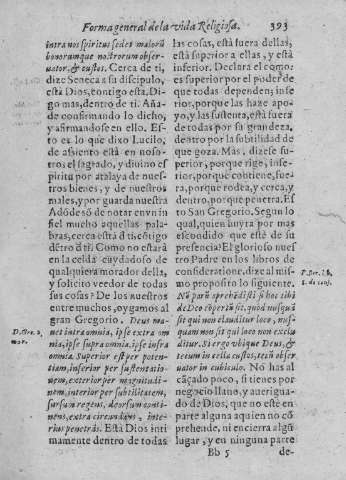 Forma general de la vida Religiosa. 393
intra nos spiritus sedet malorũ
bonorumque nostrorum obser-
uator, & custos. Cerca de ti,
dize Seneca a su discipulo,
está Dios, contigo está, Di-
go mas, dentro de ti. Aña-
de confirmando lo dicho,
y afirmandose en ello. Es-
to es lo que digo Lucilo,
de assiento está en noso-
tros el sagrado, y diuino es
piritu por atalaya de nues-
tros bienes, y de nuestros
males, y por guarda nuestra
Adõde sõ de notar en vn in
fiel mucho aquellas pala-
bras, cerca está d ti, cõtigo
dẽtro d ti. Como no estará
en la celda cuydadoso de
qualquiera morador della,
y solicito veedor de todas
sus cosas? De los nuestros
entre muchos, oygamos al
gran Gregorio. Deus ma-
net intra omnia, ipse extra om
nia, ipse supra omnia, ipse infra
omnia. Superior est per poten-
tiam, inferior per sustentatio-
nem, exterior per magnitudi-
nem, interior per subtilitatem,
sursum regens, deorsum conti-
nens, extra circundans, inte-
rius penetrans. Está Dios inti
mamente dentro de todas
D. Gre. 2,
mor.
las cosas, está fuera dellas,
está superior a ellas, y está
inferior. Declara el como,
es superior por el poder de
que todas dependen; infe
rior, porque las haze apo-
yo, y las sustenta, está fuera
de todas por su grandeza,
dentro por la subtilidad de
que goza. Mas, dizese su-
perior, porque rige, infe-
rior, porque contiene, fue-
ra, porque rodea, y cerca, y
dentro, porque penetra. Es
to San Gregorio. Segun lo
qual, quien huyra por mas
escondido que esté de su
presencia? El glorioso nues
tro Padre en los libros de
consideratione, dize al mis-
mo proposito lo siguiente.
Nũ parũ aprehẽdisti si hoc tibi
de Deo cõpertũ sit, quod nusquã
sit qui non clauditur loco, nus-
quam non sit qui loco non exclu
ditur. Si ergo vbique Deus, &
tecum in cella custos, tecũ obser
uator in cubiculo. No has al
cãçado poco, si tienes por
negocio llano, y aueriguа-
do de Dios, que no esté en
parte alguna aquien no cõ
prehende, ni encierra algũ
lugar, y en ninguna parte
Bb 5 de-